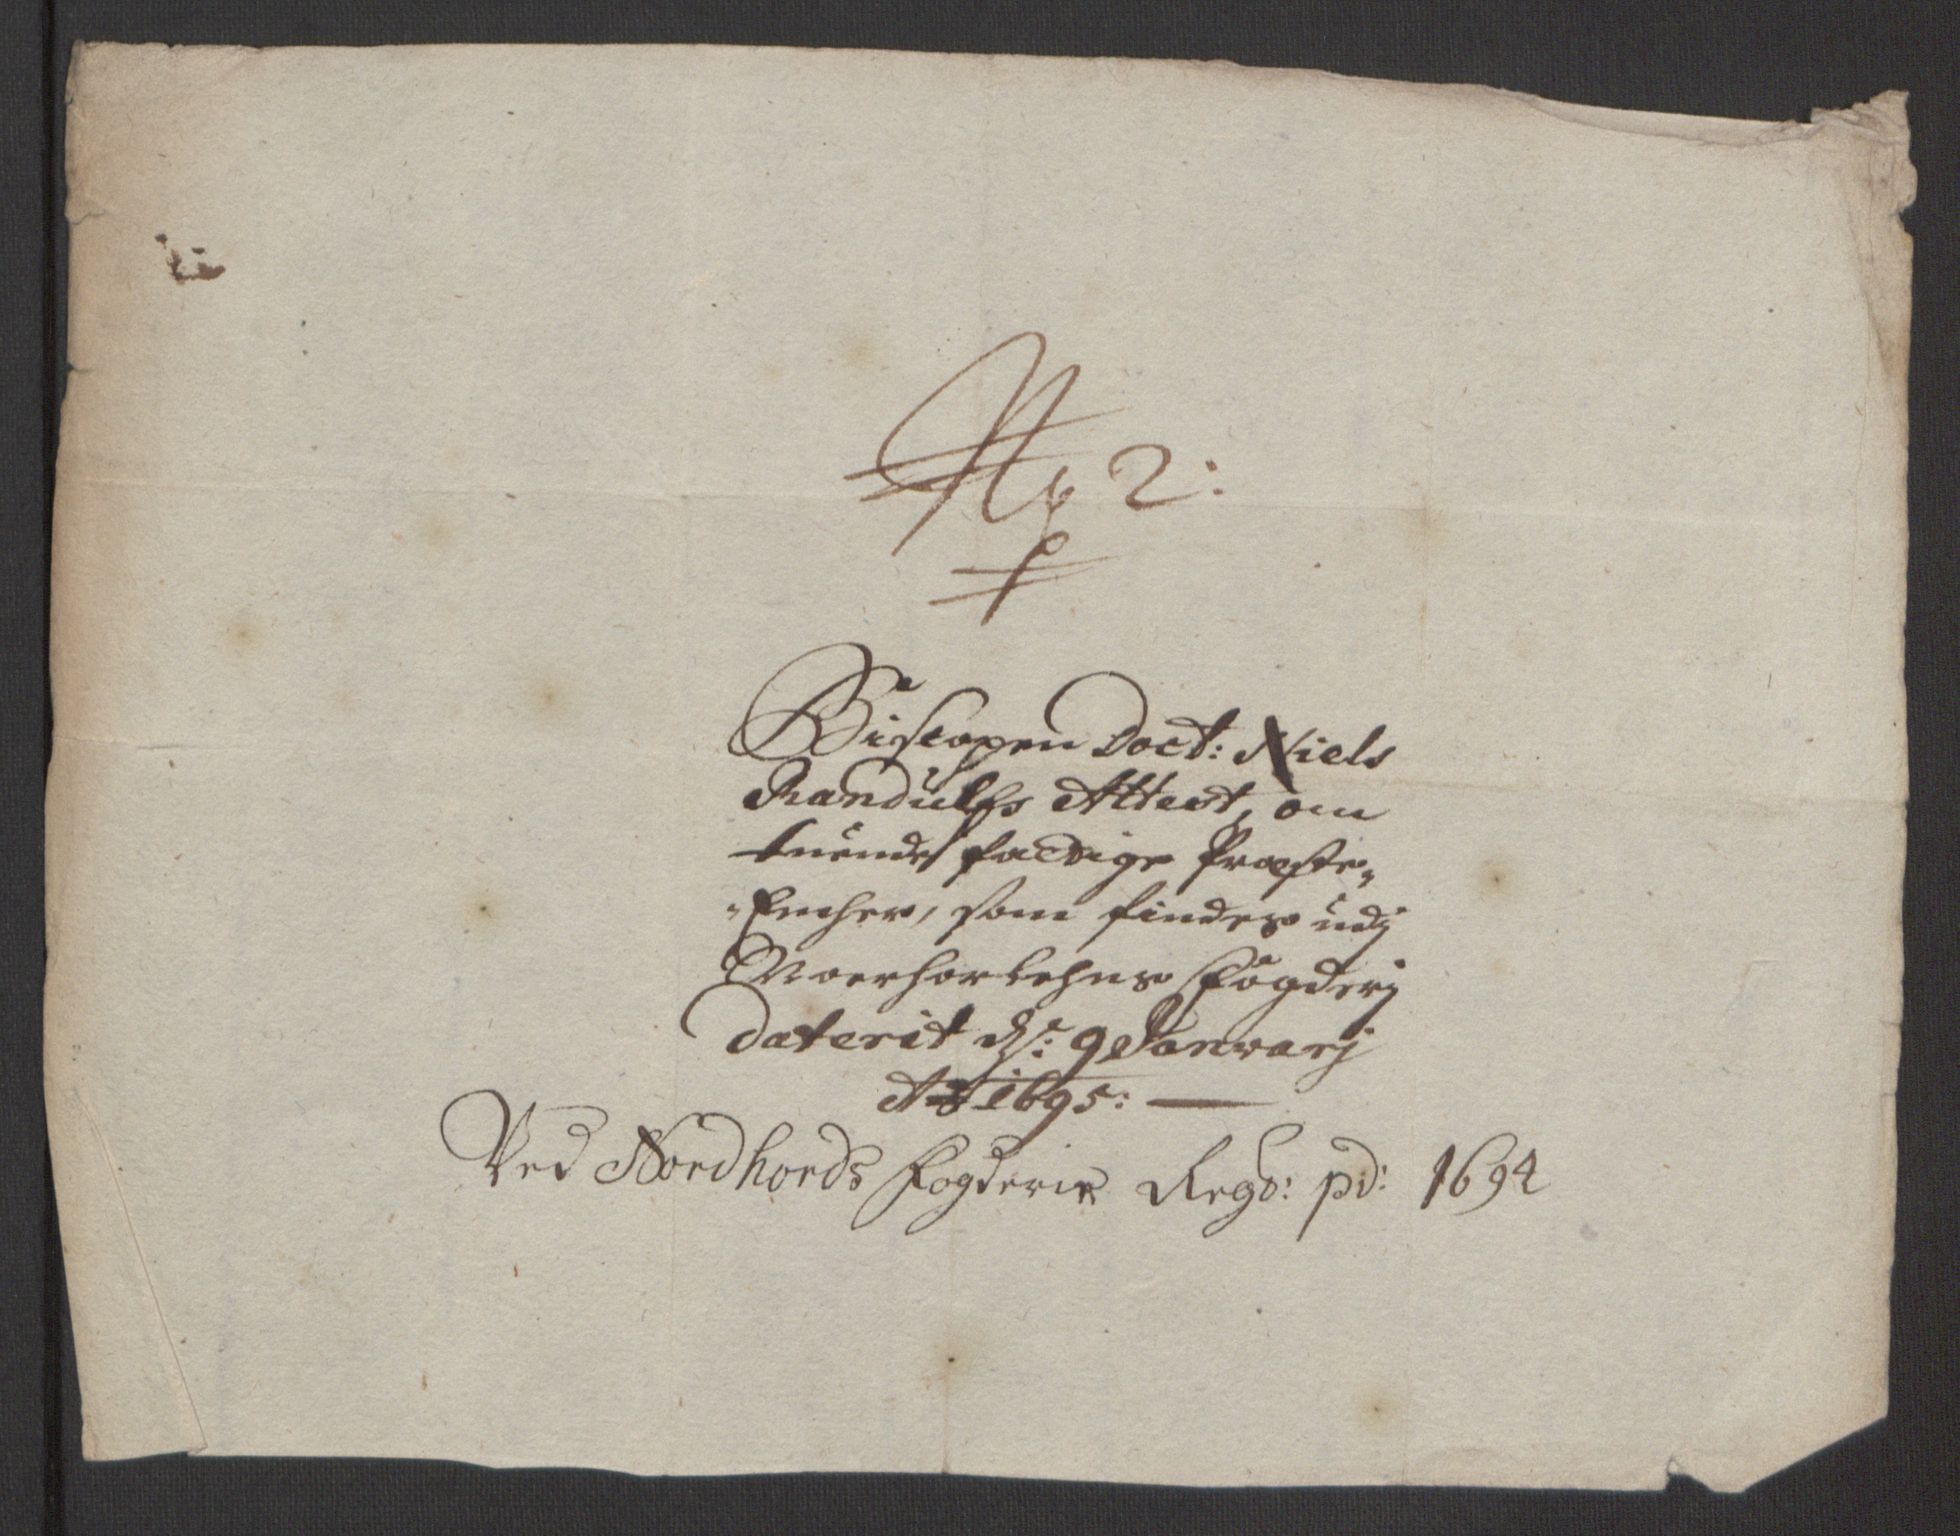 No 2:
Biscopen Doct: Niels
Randulfs Attest, om
tuende faldige Præste-
-Encher, som findes udj
Noerhorlehns Fögderj
daterit ds: 9 Janwarj
Ao 1695:
Ved Nordhords Fogderie Regs: pd: 1694